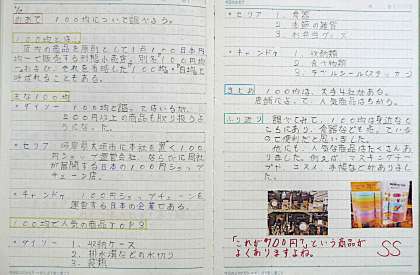 めあて 100均について調べよう。
100均とは
店内の商品を原則として1点100日本円
均一で販売する形態の小売店。別名100円均
一。および、それを省略した「100均」「百均」と
呼ばれることもある。
主な100均
・ダイソー 100均と謳っているが、
200円以上の商品も取り扱うよう
になった。
・セリア 岐阜県大垣市に本社を置く100円
ショップ運営会社、ならびに同社
が展開する日本の100円ショップ
チェーン店。
・キャンドゥ 100円ショップチェーンを
運営する日本の企業である。
100均で人気の商品TOP3
・ダイソー 1、収納ケース
2、排水溝などの水切り
3、食類
・セリア 1、食器
2、季節の雑貨
3、お弁当グッズ
・キャンドゥ 1、収納類
2、食べ物類
3、ラベルシール(ステッカー)
まとめ 100均は、大きく4社がある。
店舗によって、人気商品はちがう。
ふり返り 調べてみて、100均は身近なと
ころにあり、食器なども売っている
ので便利だと思いました。
他にも、人気な商品はたくさんあ
りました。例えば、マスキングテー
プ、コスメ、手帳などがありまし
た。
「これが100円?」という商品が
よくありますよね。
SS